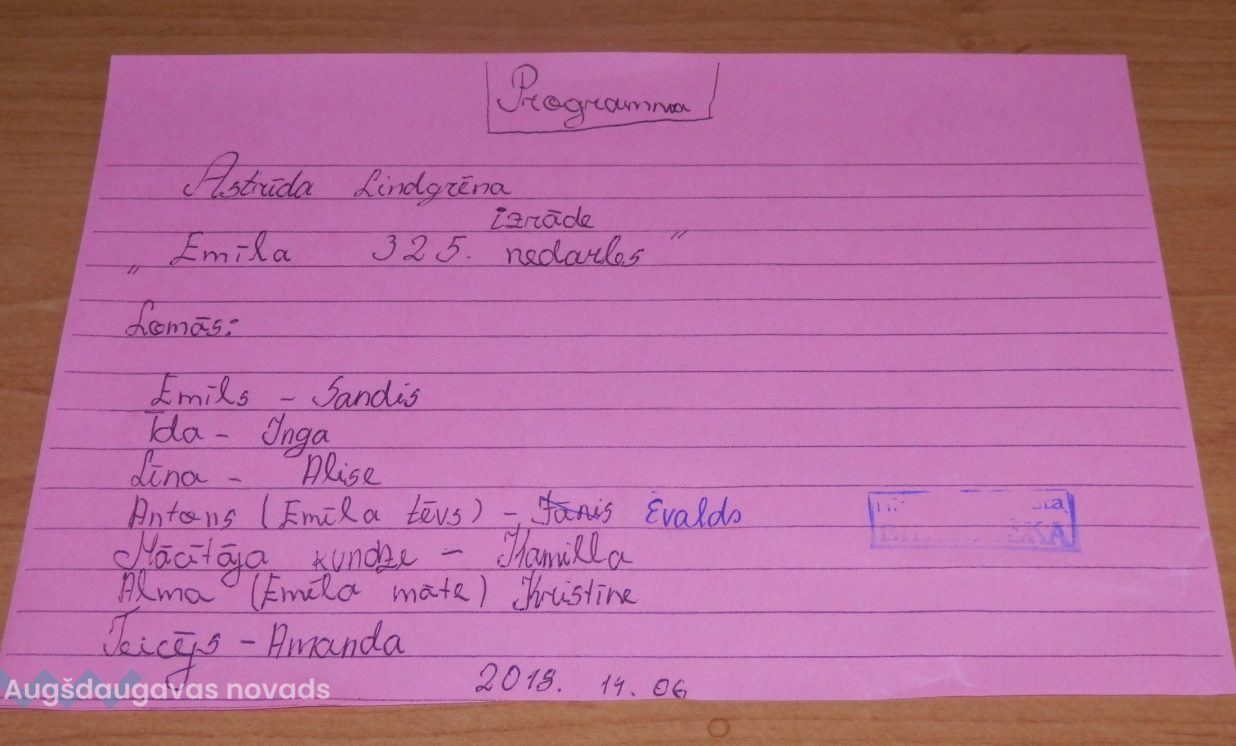 Programma
Astrīda Lindgrēna
izrāde
„Emīla 325. nedarbs”
Lomās:
Emīls - Sandis
Īda - Inga
Līna - Alise
Antons (Emīla tēvs) - Jānis Evalds
Mācītāja kundze - Kamilla
Alma (Emīla māte) Kristīne
Teicējs - Amanda
14. 06
Augšdaugavas novads